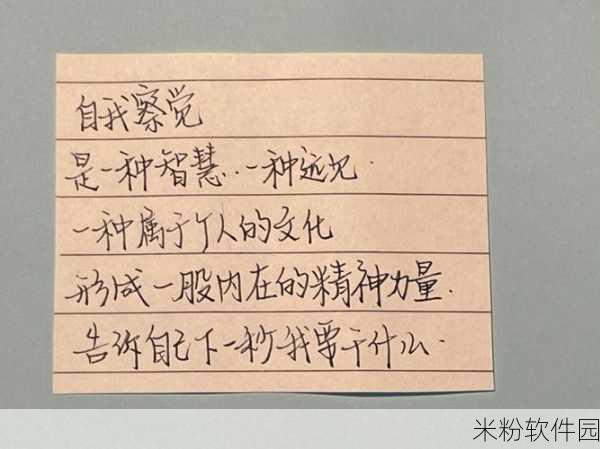 自我察觉
是一种智慧.一种远见.
一种属于个人的文化
形成一股内在的精神力量.
告诉自己下一秒我要干什么.
米粉软件园